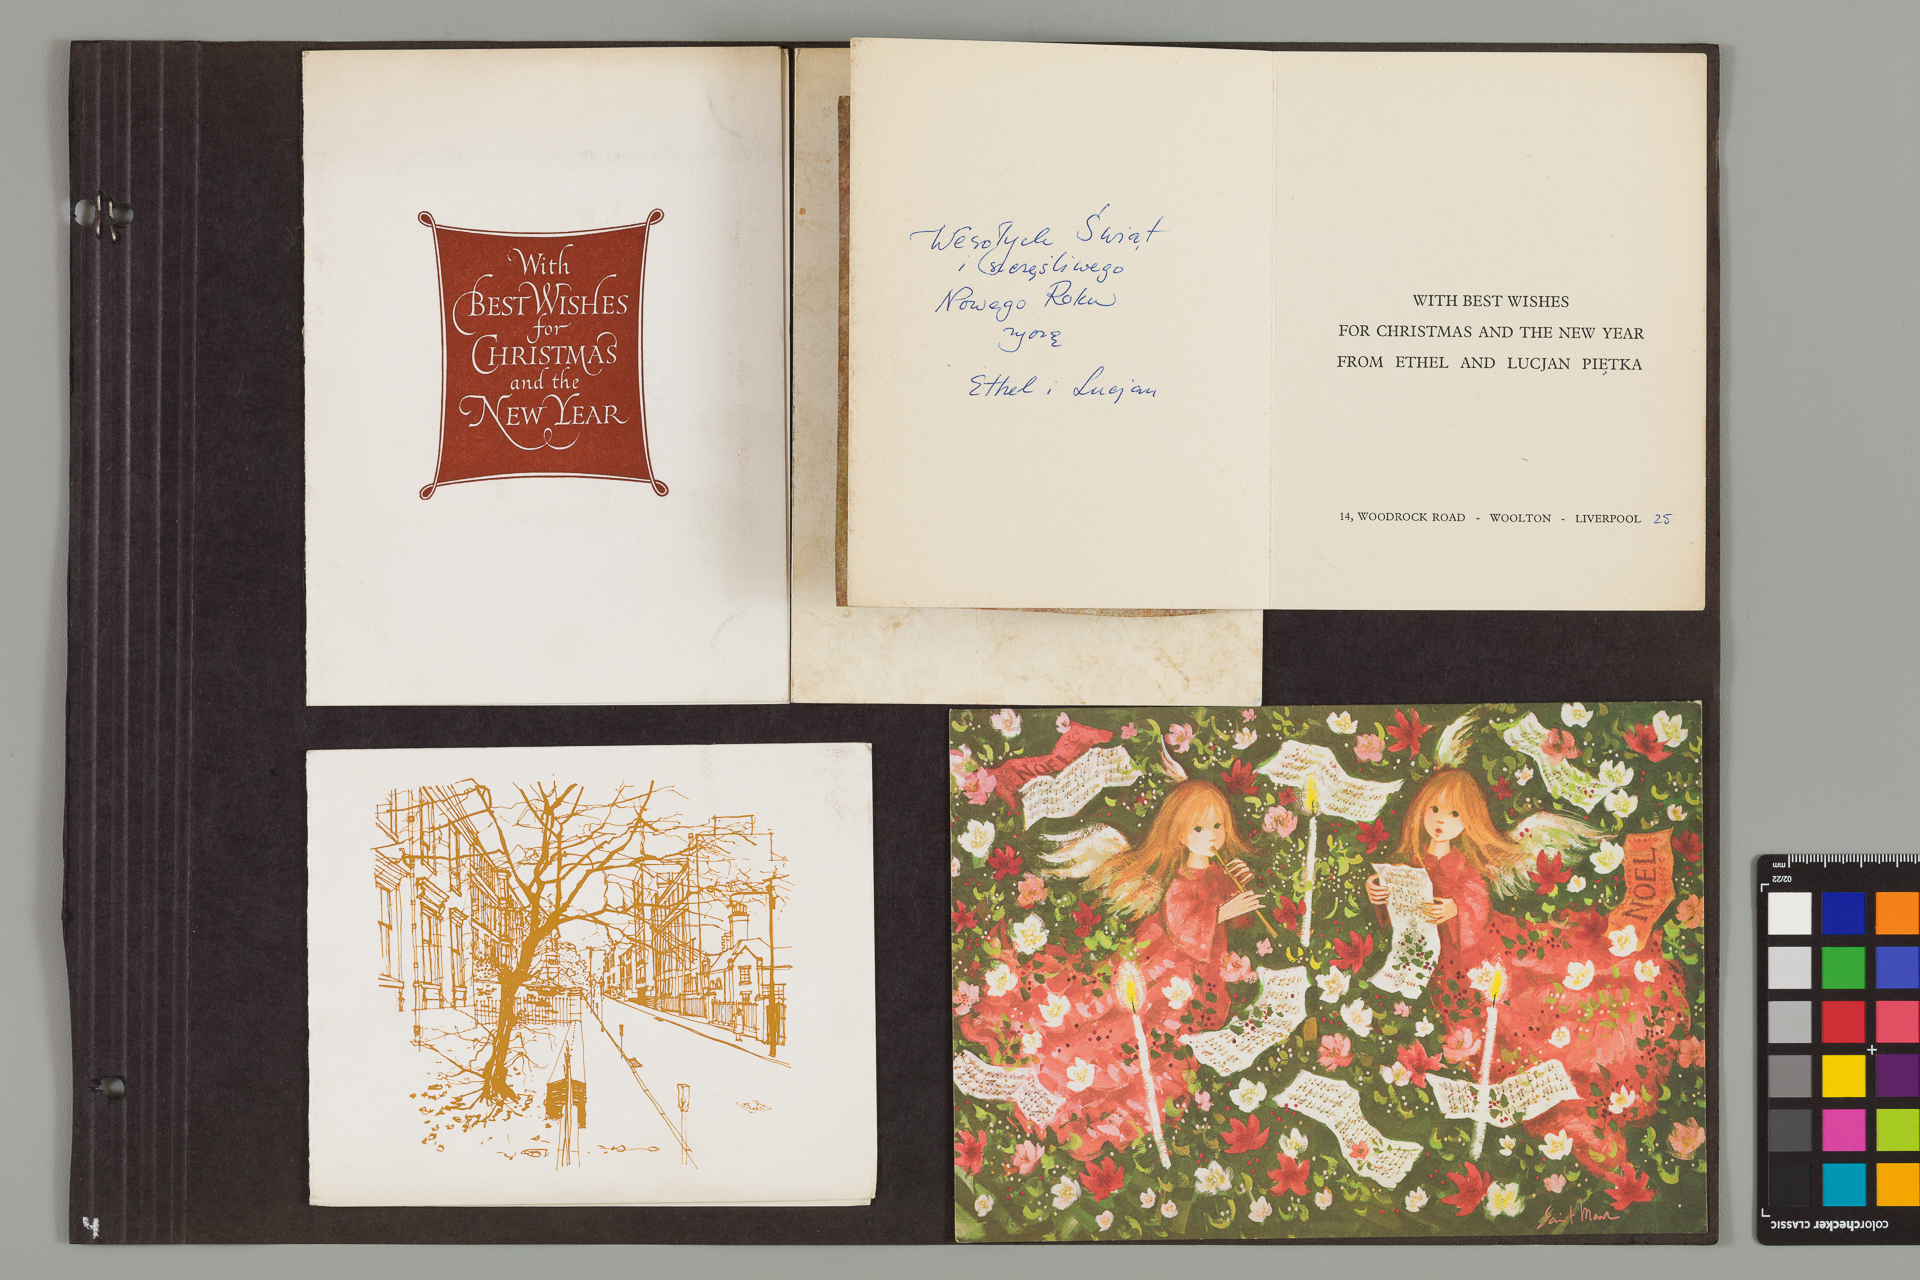 With
BEST WISHES
for
CHRISTMAS
and the
NEW YEAR
Wesołych Świąt
i szczęśliwego
Nowego Roku
życzą
Ethel i Lucjan
WITH BEST WISHES
FOR CHRISTMAS AND THE NEW YEAR
FROM ETHEL AND LUCJAN PIĘTKA
14, WOODROCK ROAD - WOOLTON - LIVERPOOL 25
NOEL
NOEL
4
mm
02/22
colorchecker CLASSIC